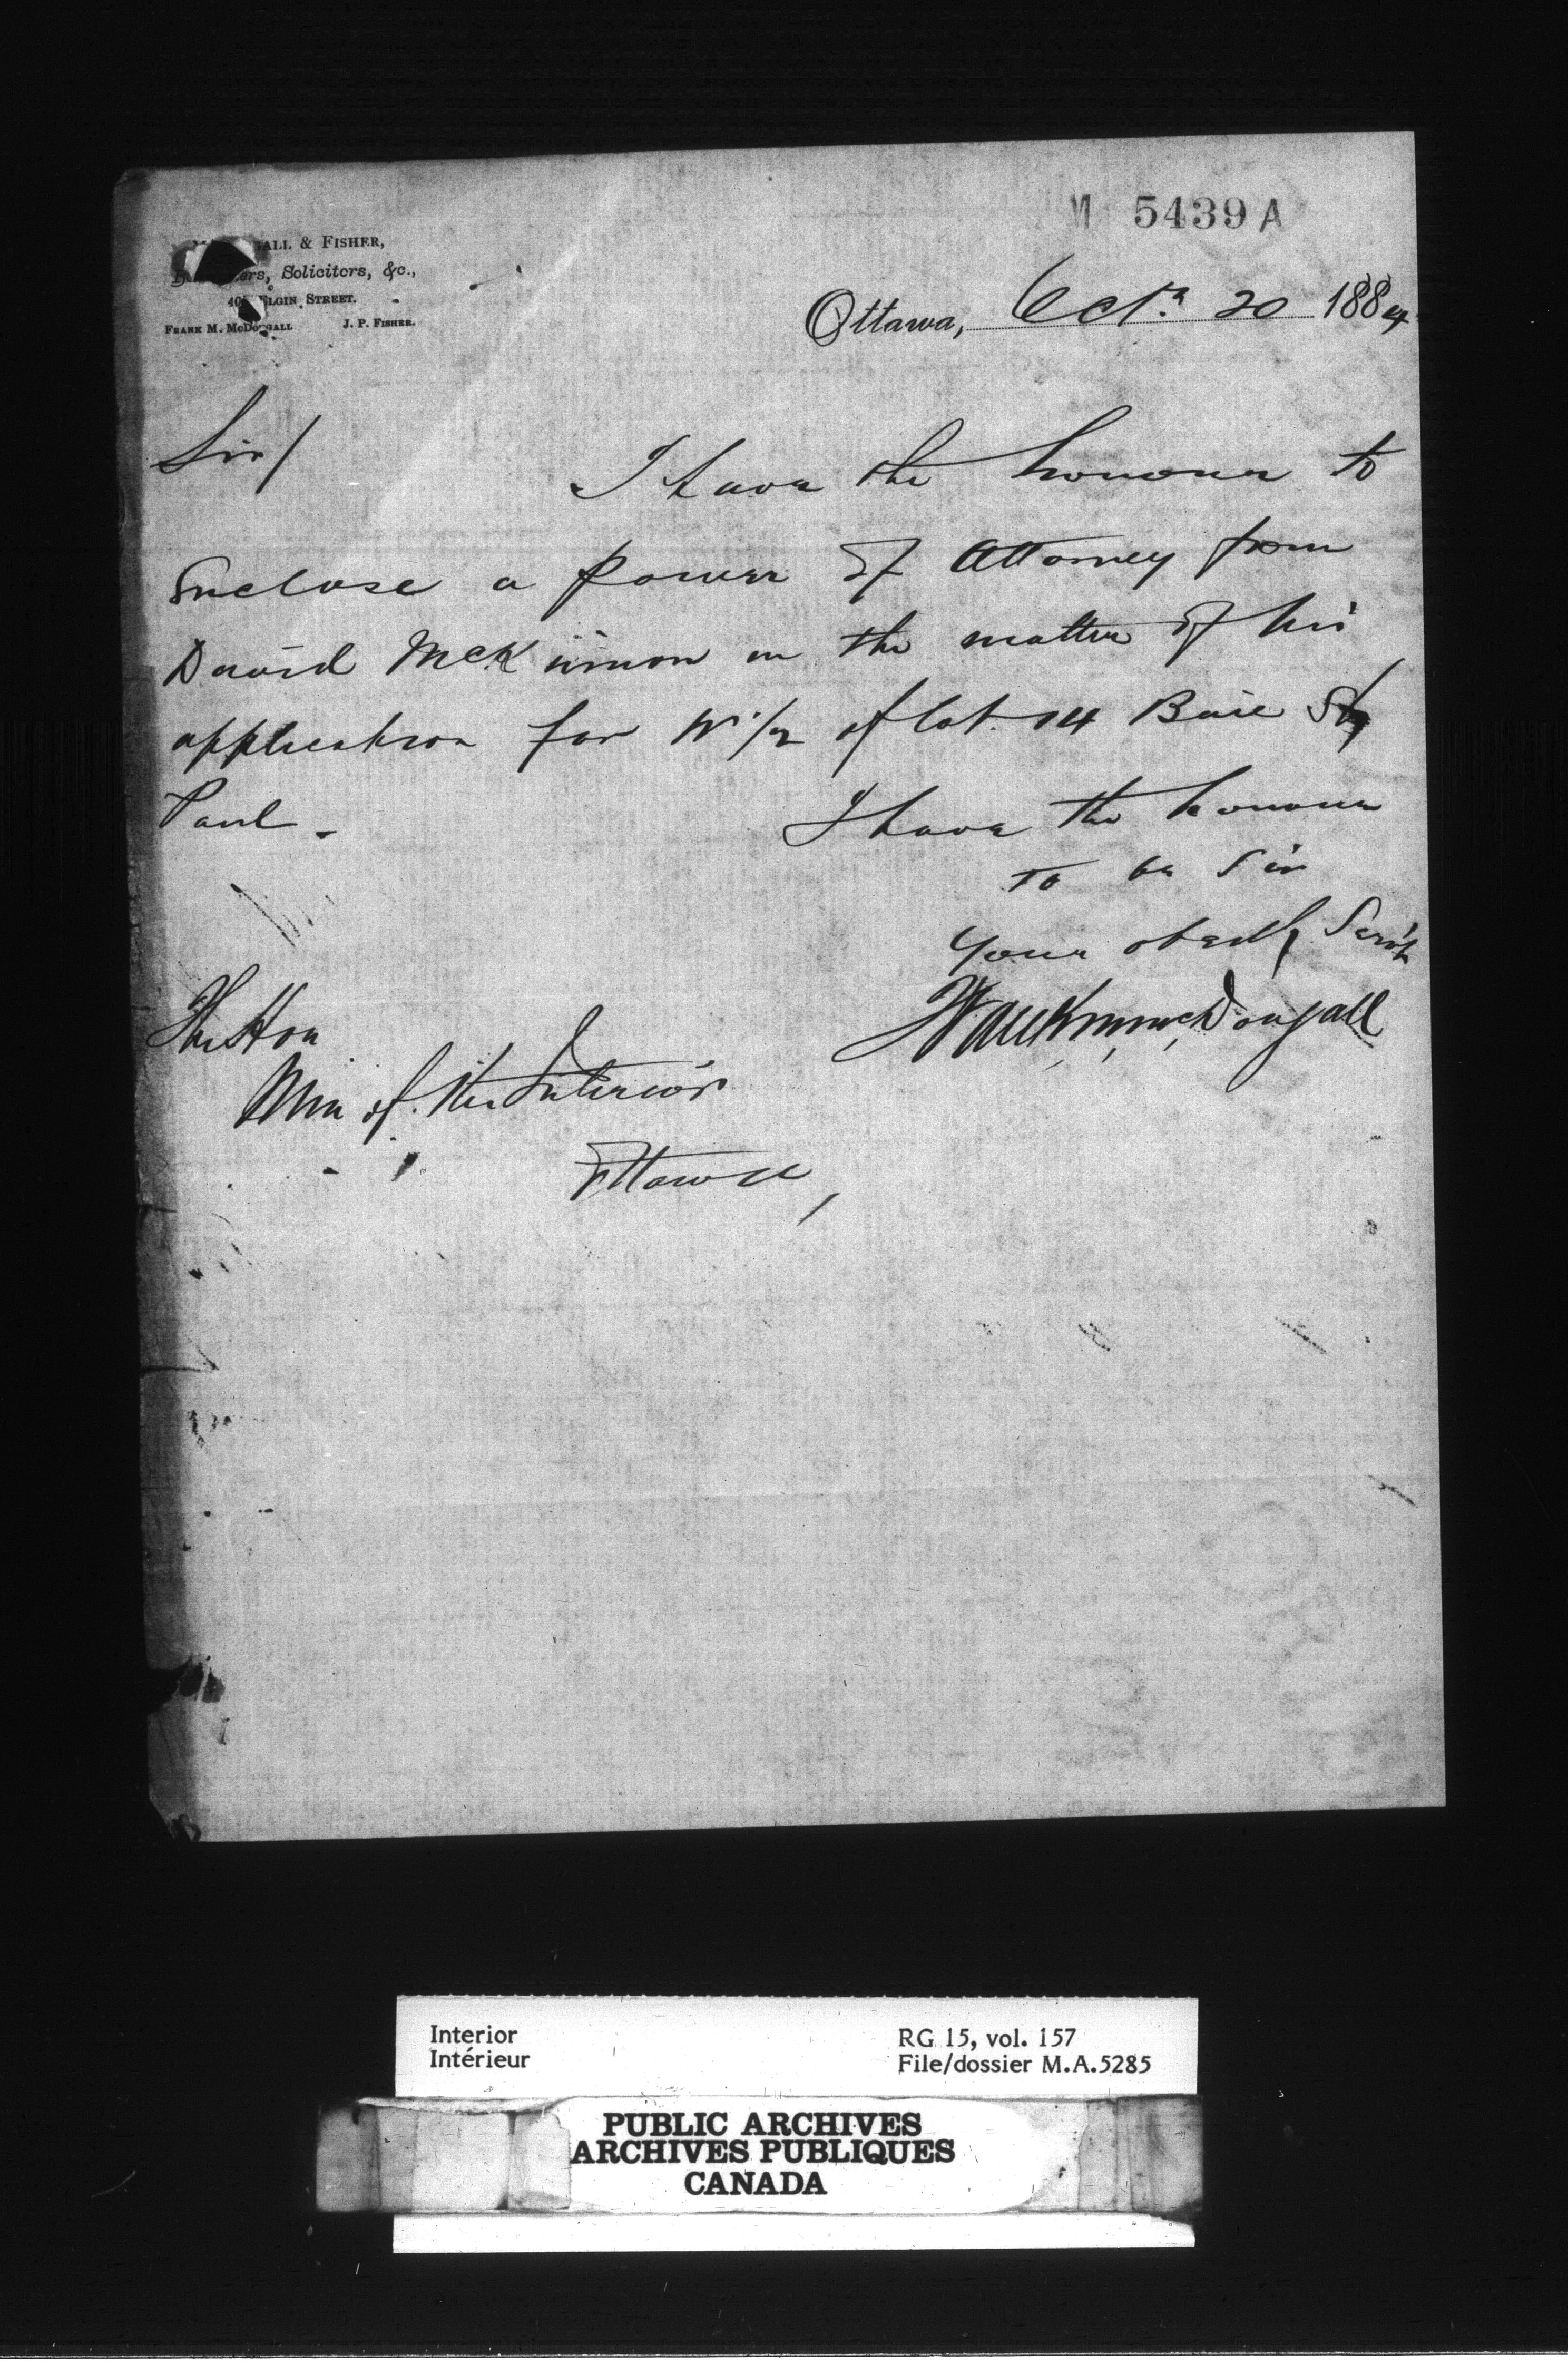 M 5439 A
& FISHER,
Solicitors, &c.,
ELGIN STREET.
FRANK M. McDOUGALL J. P. FISHER.
Ottawa, Octr. 20 1884
Sir/
I have the honour to
Enclose a power of Attorney from
David McKinnon in the matter of his
application for W 1/2 of lot 14 Baie St
Paul.
I have the honour
to be Sir
Your obedt Servt
Frank M McDougall
The Hon
Min of the Interior
Ottawa,
Interior RG 15, vol. 157
Intérieur File/dossier M.A.5285
PUBLIC ARCHIVES
ARCHIVES PUBLIQUES
CANADA